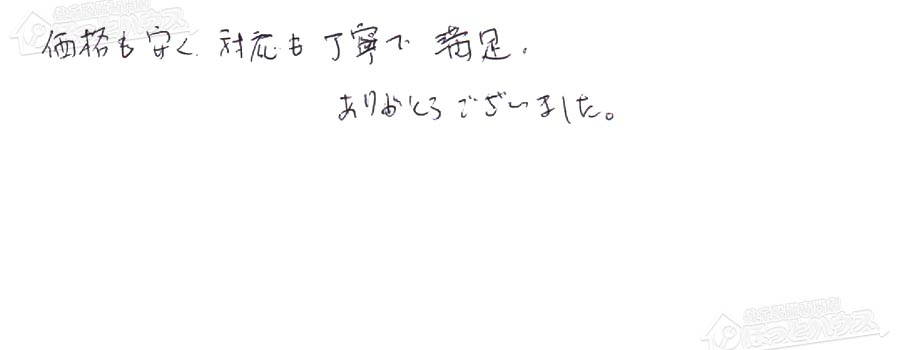 価格も安く、対応も丁寧で満足。
ありがとうございました。
ほっとハウス